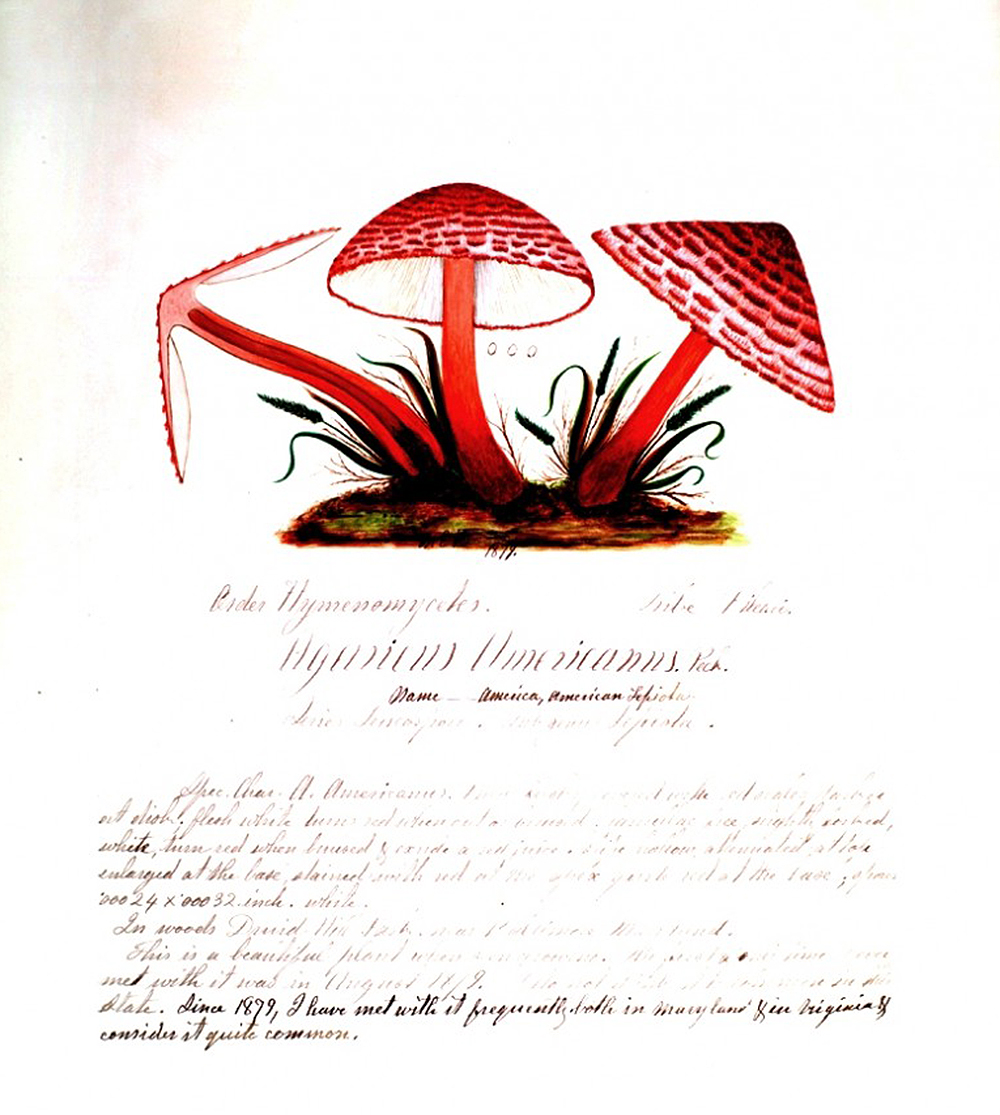 1879.
Order Hymenomycetes. Tribe
Agaricus Americanus. Peck.
Name — America, American Lepiota.
Series Lepiota.
Spec. Char. A. Americanus. with red scales,
at disk. flesh white turns red when cut or bruised.
white, turn red when bruised & exude a red juice. hollow, attenuated, at top
enlarged at the base, stained with red at the apex quite red at the base; spores
'00024 x '00032 inch. white.
In woods Druid Hill Park. near Baltimore Maryland.
This is a beautiful plant when time
met with it was in August 1879. in
State. Since 1879, I have met with it frequently both in Maryland & in Virginia &
consider it quite common.